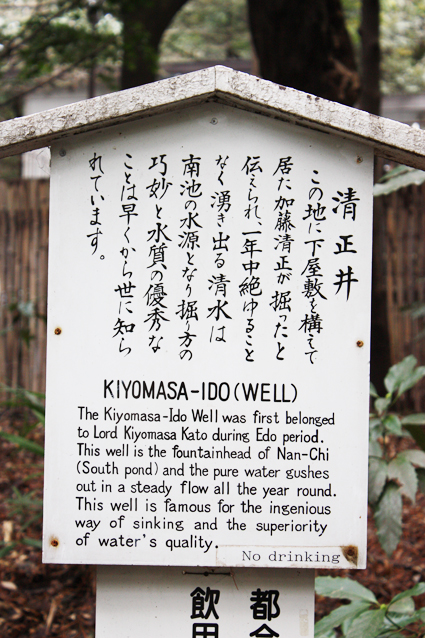 清正井
この地に下屋敷を構えて
居た加藤清正が掘ったと
伝えられ、一年中絶ゆること
なく湧き出る清水は
南池の水源となり掘り方の
巧妙と水質の優秀な
ことは早くから世に知ら
れています。
KIYOMASA-IDO (WELL)
The Kiyomasa-Ido Well was first belonged
to Lord Kiyomasa Kato during Edo period.
This well is the fountainhead of Nan-Chi
(South pond) and the pure water gushes
out in a steady flow all the year round.
This well is famous for the ingenious
way of sinking and the superiority
of water's quality.
No drinking
都合
飲用